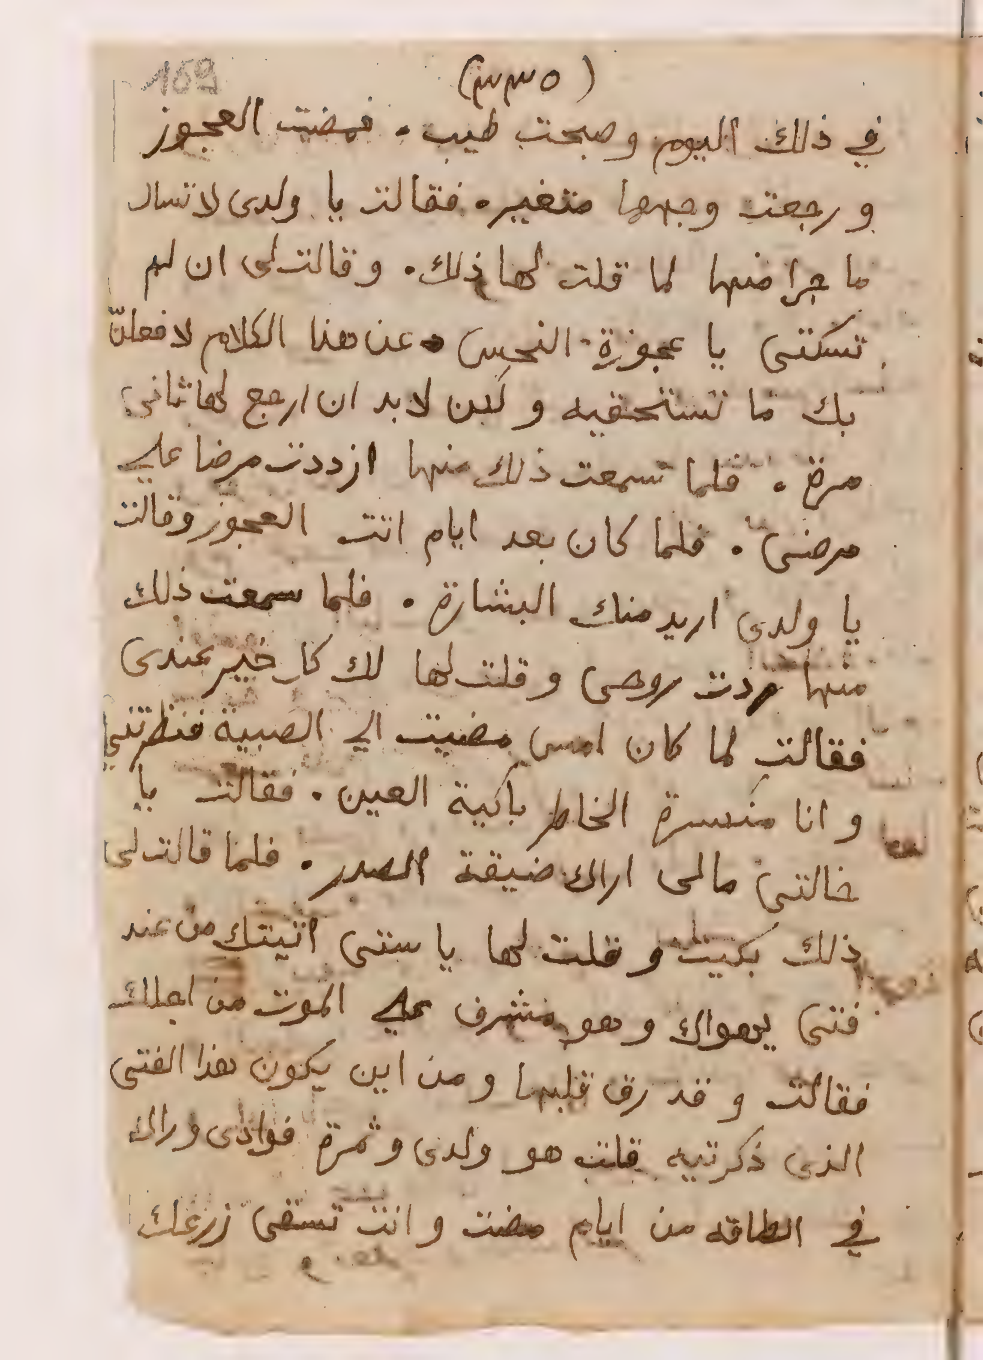 169
(٣٣٥)
في ذلك اليوم وصبحت طيب . فمضيت العجوز
ورجعت وجهها متغير . فقالت يا ولدى لا تسال
ما جرا منها لما قلت لها ذلك . وقالت لى ان لم
تسكتى يا عجوزة النحس عن هذا الكلام لافعلنّ
بك ما تستحقيه ولكن لا بد ان ارجع لها ثانى
مرة . فلما سمعت ذلك منها ازددت مرضا على
مرضى . فلما كان بعد ايام اتت العجوز وقالت
يا ولدى اريد منك البشارة . فلما سمعت ذلك
منها ردت روحى وقلت لها لك كل خير عندى
فقالت لما كان امس مضيت الى الصبية فنظرتني
وانا منكسرة الخاطر باكية العين . فقالت يا
خالتى مالى اراك ضيقة الصدر . فلما قالت لى
ذلك بكيت وقلت لها يا ستى اتيتك من عند
فتى يهواك وهو مشرف على الموت من اجلك
فقالت وقد رق قلبها ومن اين يكون هذا الفتى
الذى ذكرتيه قلت هو ولدى وثمرة فوادى وراك
في الطاقه من ايام مضت وانت تسقى زرعك